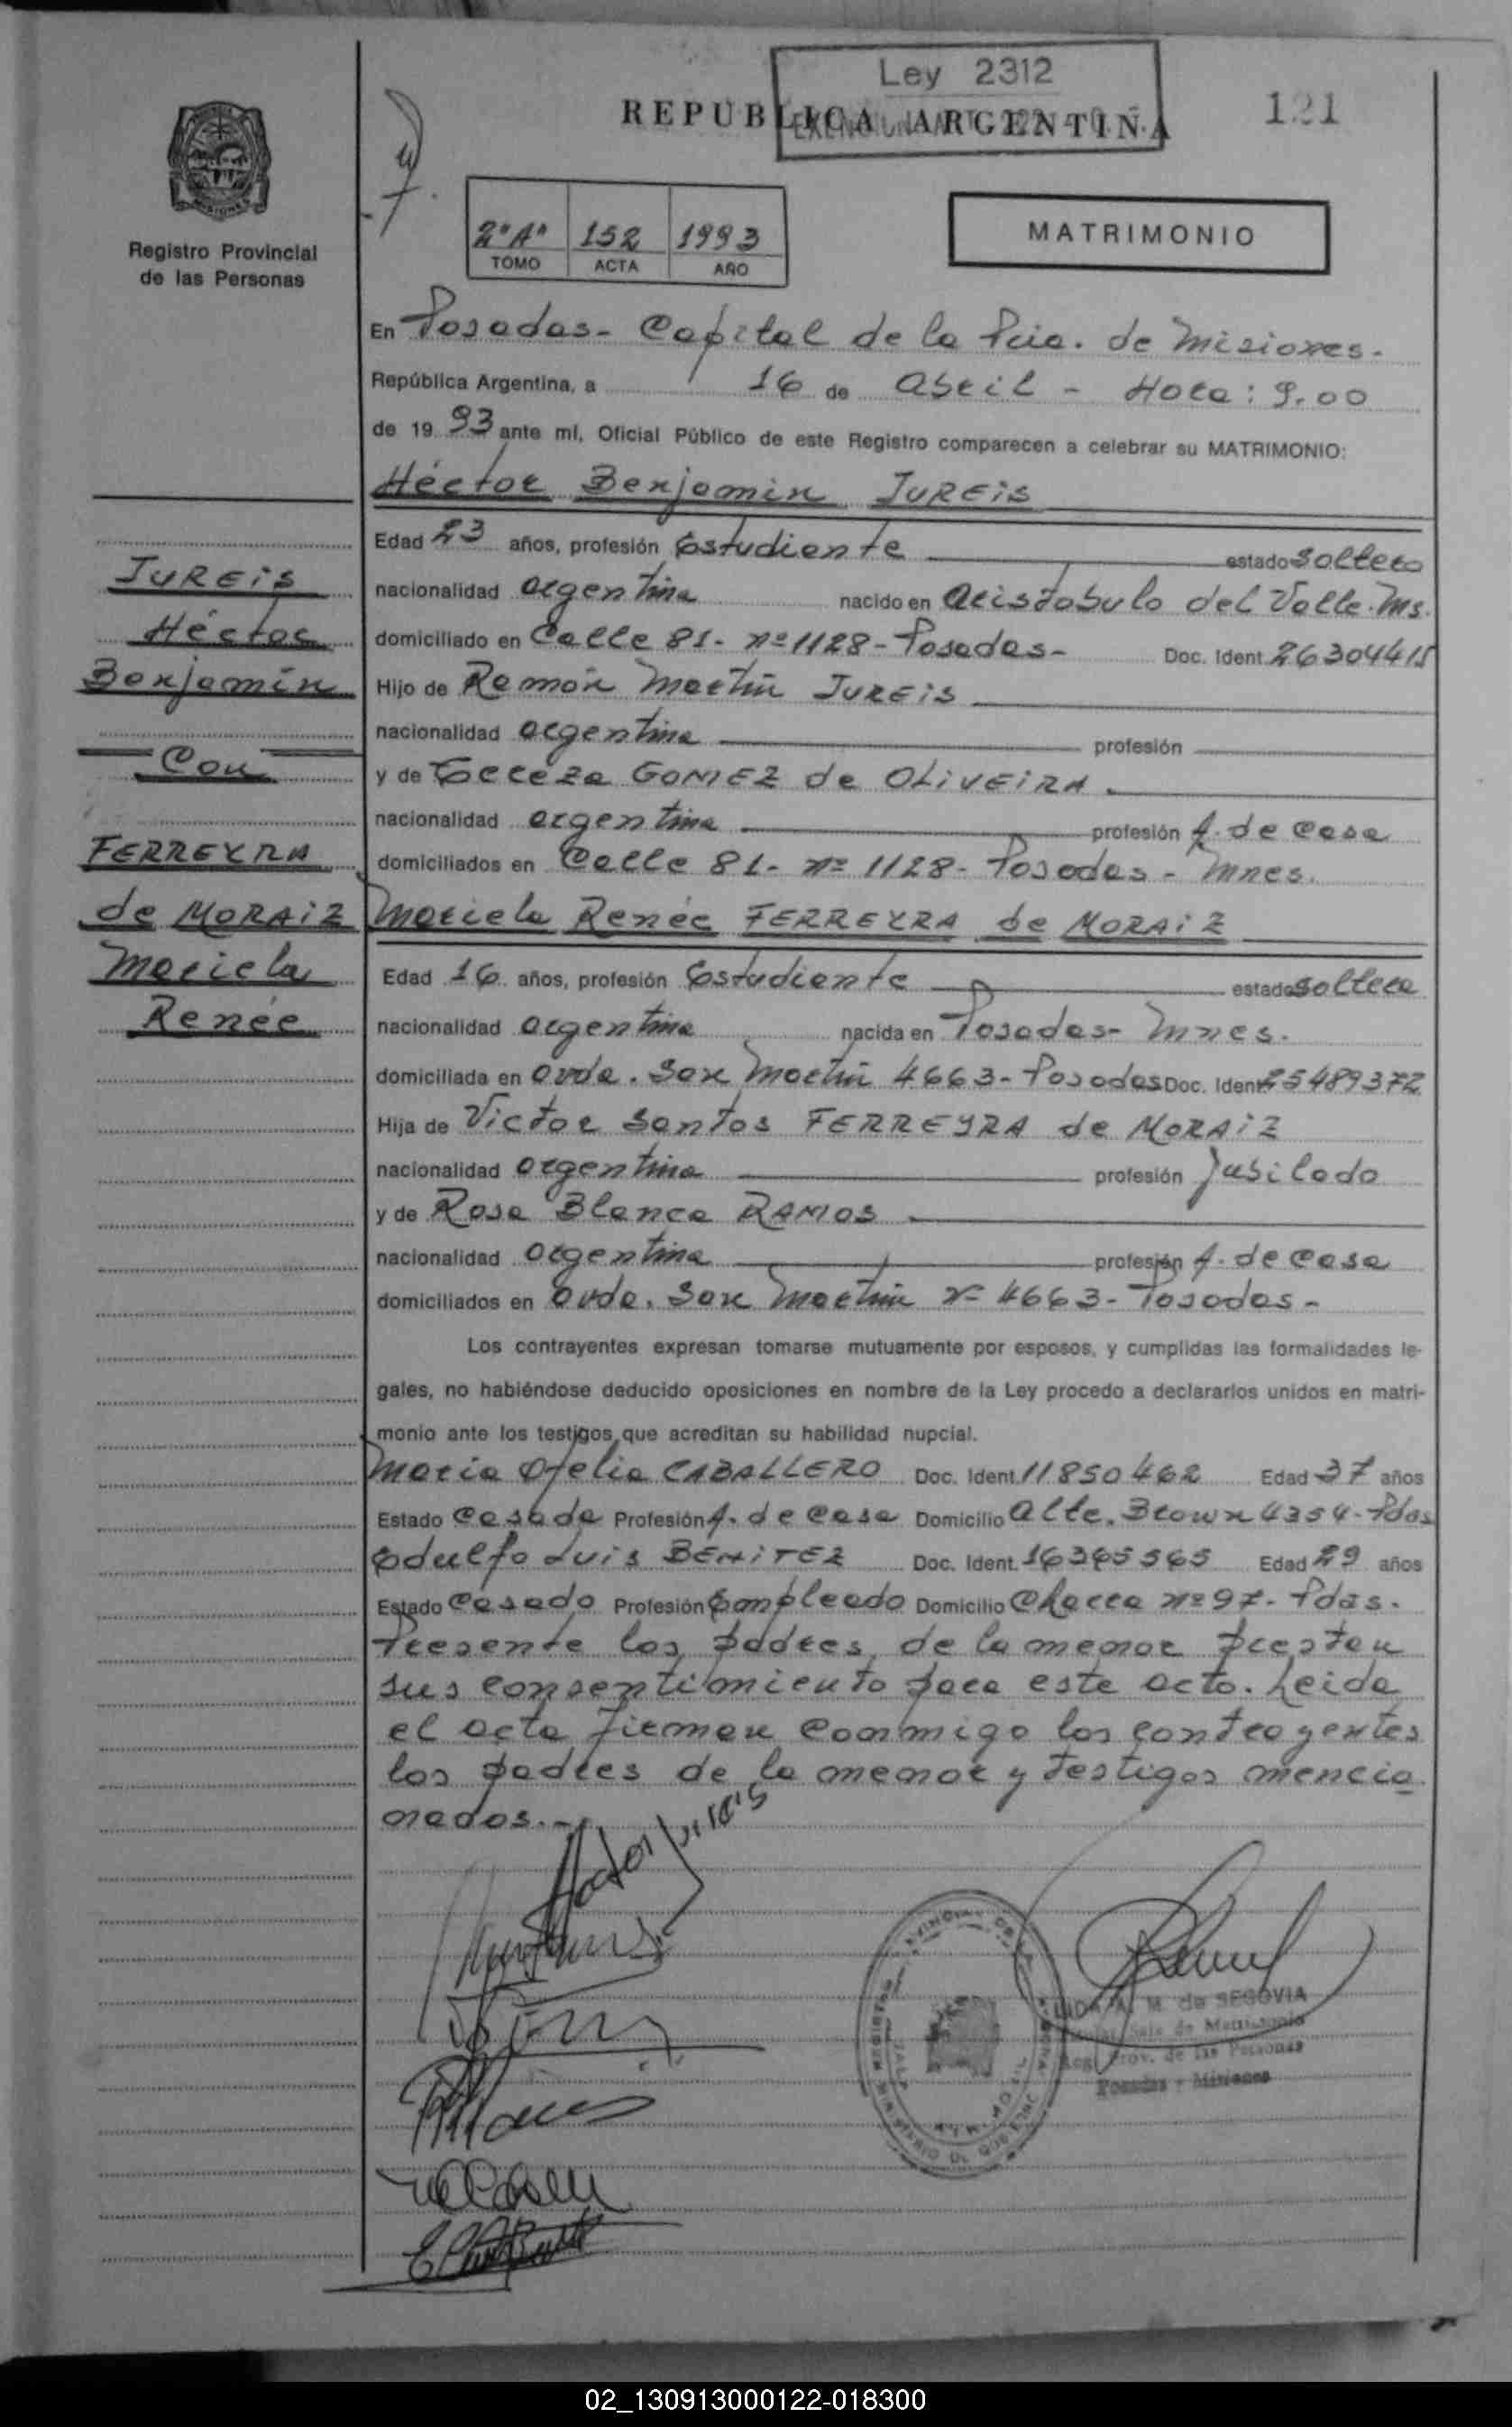 Ley 2312
REPUBLICA ARGENTINA
121
MISIONES
Registro Provincial
de las Personas
2º "A" 152 1993
TOMO ACTA AÑO
MATRIMONIO
En Posadas - Capital de la Pcia. de Misiones.-
República Argentina, a 16 de abril - Hora: 9.00
de 19 93 ante mí, Oficial Público de este Registro comparecen a celebrar su MATRIMONIO:
Héctor Benjamín JUREiS
Edad 23 años, profesión Estudiante estado soltero
nacionalidad argentina nacido en Aristóbulo del Valle. Ms.
domiciliado en Calle 81- nº 1128- Posadas- Doc. Ident. 26304415
Hijo de Ramón Martín JUREiS
nacionalidad argentina profesión
y de Tereza GOMEZ de OLiVEiRA.
nacionalidad argentina profesión A. de casa
domiciliados en Calle 81- nº 1128- Posadas - Mnes.
Mariela Renée FERREYRA de MORAiZ
Edad 16 años, profesión Estudiante estado soltera
nacionalidad argentina nacida en Posadas- Mnes.
domiciliada en Avda. San Martín 4663- Posadas Doc. Ident. 25489372
Hija de Víctor Santos FERREYRA de MORAiZ
nacionalidad argentina profesión Jubilado
y de Rosa Blanca RAMOS
nacionalidad argentina profesión A. de casa
domiciliados en Avda. San Martín nº 4663- Posadas-
Los contrayentes expresan tomarse mutuamente por esposos, y cumplidas las formalidades le-
gales, no habiéndose deducido oposiciones en nombre de la Ley procedo a declararlos unidos en matri-
monio ante los testigos que acreditan su habilidad nupcial.
María Ofelia CABALLERO Doc. Ident. 11850462 Edad 37 años
Estado casada Profesión A. de casa Domicilio Alte. Brown 4354- Pdas
Edulfo Luis BENiTEZ Doc. Ident. 16365565 Edad 29 años
Estado casado Profesión Empleado Domicilio Chacra nº 97- Pdas.
Presente los padres de la menor prestan
sus consentimiento para este acto. Leida
el acta firman conmigo los contrayentes
los padres de la menor y testigos mencio
nados.-
JUREiS
Héctor
Benjamín
Con
FERREYRA
de MORAiZ
Mariela
Renée
Hector Jureis
LIDIA A. M. de SEGOVIA
Reg. Prov. de las Personas
Posadas - Misiones
02_130913000122-018300